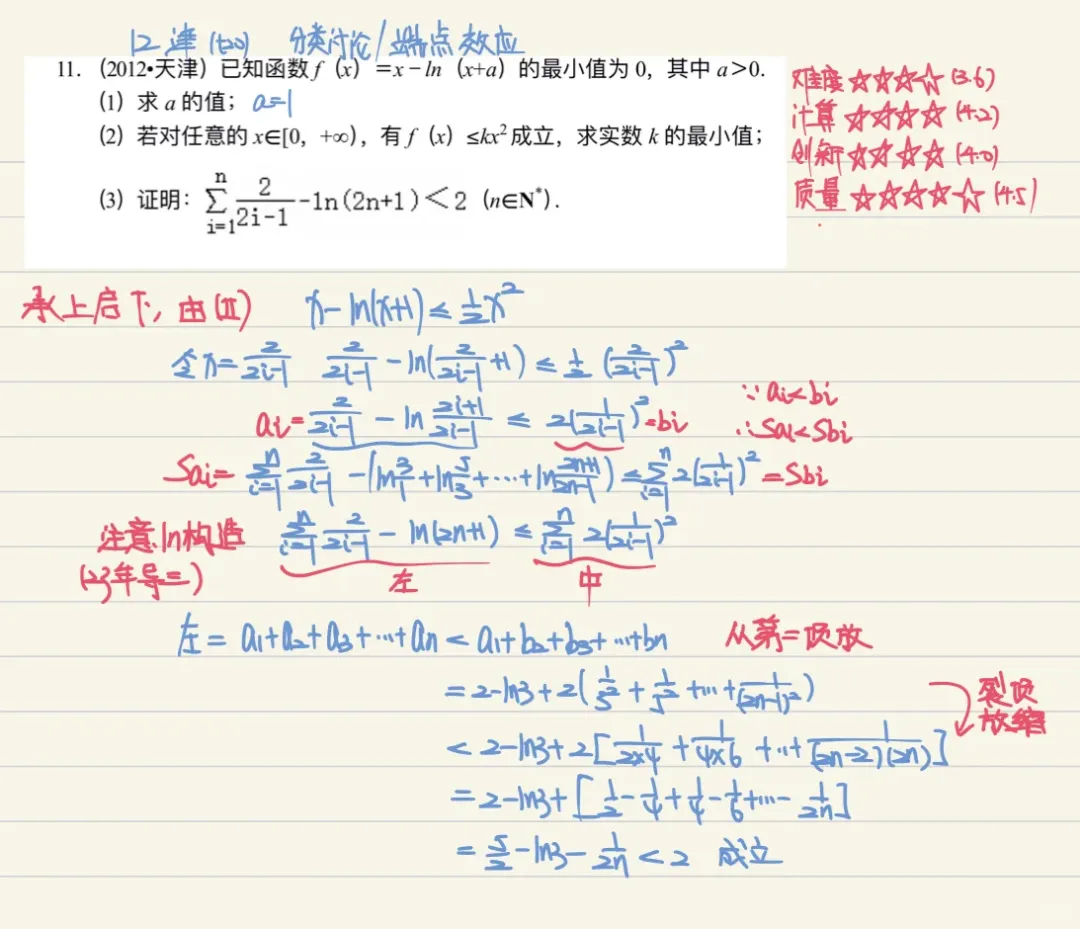 12津(t20) 分类讨论/端点效应
11. (2012•天津) 已知函数 f (x) =x-ln (x+a) 的最小值为 0, 其中 a>0.
(1) 求 a 的值; a=1
(2) 若对任意的 x∈[0, +∞), 有 f (x) ≤kx² 成立, 求实数 k 的最小值;
(3) 证明: ∑_{i=1}^{n} 2/(2i-1) -ln(2n+1)<2 (n∈N*).
难度 ☆☆☆☆ (3.6)
计算 ☆☆☆☆ (4.2)
创新 ☆☆☆☆ (4.0)
质量 ☆☆☆☆☆ (4.5)
承上启下, 由(II) x-ln(x+1) ≤ 1/2 x²
令x=2/(2i-1) 2/(2i-1) - ln(2/(2i-1)+1) ≤ 1/2 (2/(2i-1))²
ai= 2/(2i-1) - ln (2i+1)/(2i-1) ≤ 2(1/(2i-1))² =bi
∵ ai<bi
∴ Sai<Sbi
Sai= ∑_{i=1}^{n} 2/(2i-1) -(ln 3/1+ln 5/3+⋯+ln (2n+1)/(2n-1)) ≤ ∑_{i=1}^{n} 2(1/(2i-1))² =Sbi
注意ln构造 ∑_{i=1}^{n} 2/(2i-1) - ln(2n+1) ≤ ∑_{i=1}^{n} 2(1/(2i-1))²
(23年导二) 左 中
左= a1+a2+a3+⋯+an < a1+b2+b3+⋯+bn 从第二项放
=2-ln3+2(1/3²+1/5²+⋯+1/(2n-1)²)
裂项
放缩
<2-ln3+2[1/(2×4)+1/(4×6)+⋯+1/((2n-2)(2n))]
=2-ln3+[1/2-1/4+1/4-1/6+⋯-1/2n]
=5/2-ln3-1/2n<2 成立